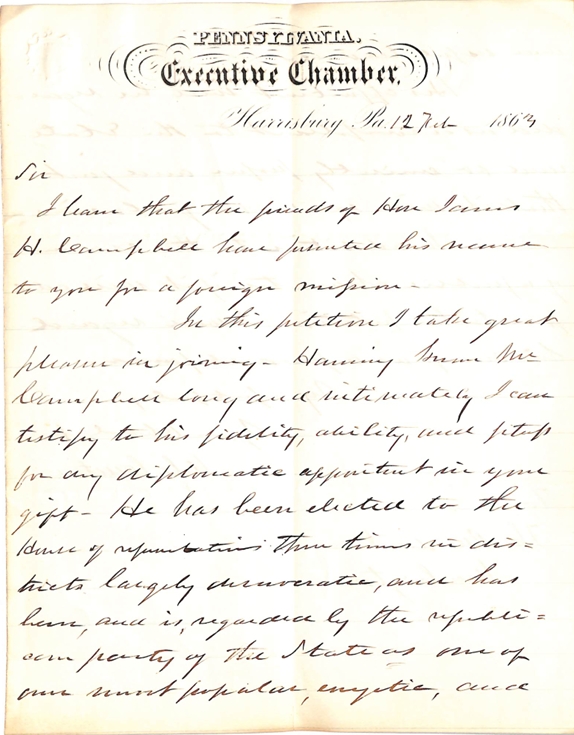 PENNSYLVANIA.
Executive Chamber.
Harrisburg Pa. 12 Feb 1863
Sir
I learn that the friends of Hon James
H. Campbell have presented his name
to you for a foreign mission -
In this petition I take great
pleasure in joining - Having known Mr
Campbell long and intimately I can
testify to his fidelity, ability, and fitness
for any diplomatic appointment in your
gift - He has been elected to the
House of representatives three times in dis=
tricts largely democratic, and has
been, and is, regarded by the republi=
can party of the State as one of
our most popular, energetic, and